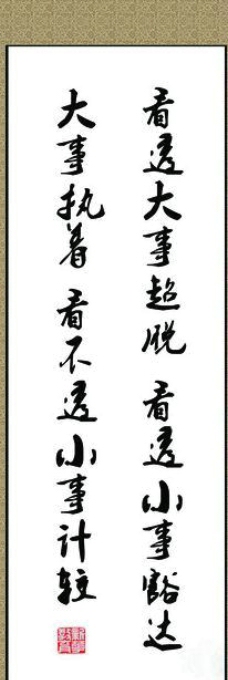 看透大事超脱看透小事豁达
大事执着看不透小事计较